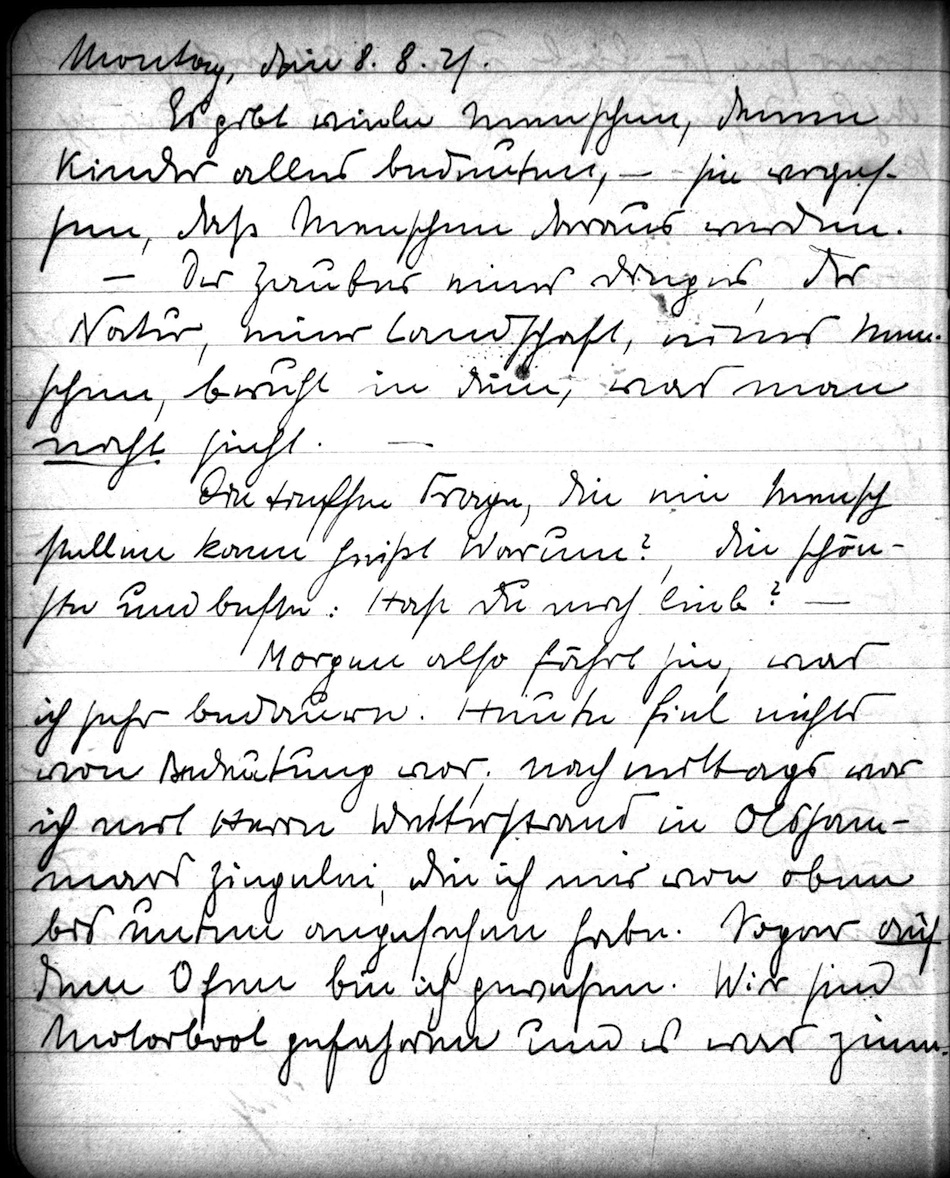 Montag, den 8. 8. 21.
Es gibt viele Menschen, denen
Kinder alles bedeuten, — sie verges-
sen, daß Menschen daraus werden.
— Der Zauber eines Dinges, der
Natur, einer Landschaft, eines Men-
schen, beruht in dem, was man
nicht sieht. —
Die tiefste Frage, die ein Mensch
stellen kann heißt Warum?, die schön-
ste und beste: Hast Du mich lieb? —
Morgen also fährt sie, was
ich sehr bedaure. Heute fiel nichts
von Bedeutung vor, nachmittags war
ich mit Herrn Wetterstrand in Olsham-
mars Ziegelei, die ich mir von oben
bis unten angesehen habe. Sogar auf
dem Ofen bin ich gewesen. Wir sind
Motorboot gefahren und es war ziem-